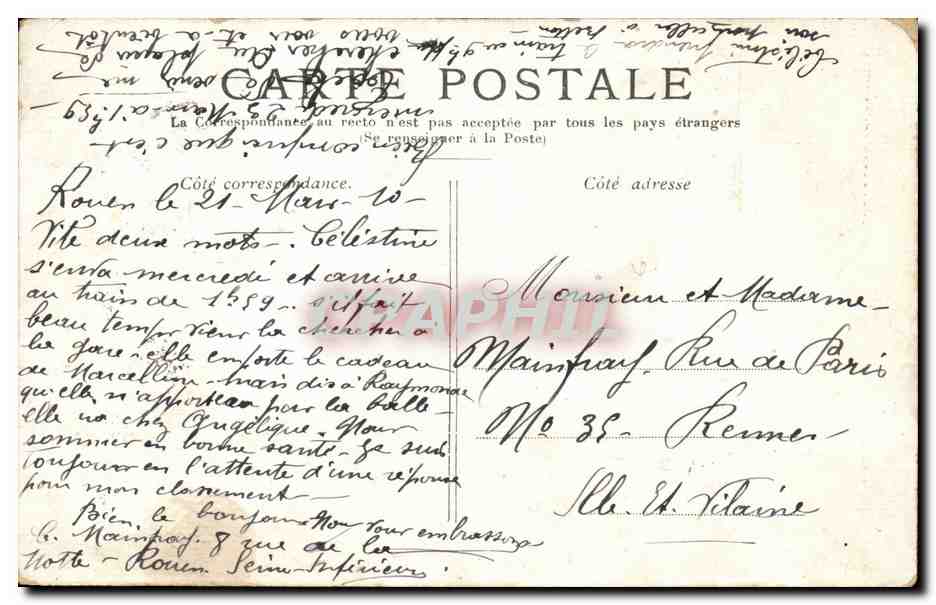 CARTE POSTALE
La Correspondance au recto n'est pas acceptée par tous les pays étrangers
(Se renseigner à la Poste)
Côté correspondance.
Côté adresse
Rouen le 21 - Mars - 10 -
Vite deux mots -. Céléstine
s'en va mercredi et arrive
au train de 1h59 - s'il fait
beau temps vieur la chercher a
la gare - elle emporte le cadeau
de Marcelline - mais dis à Raymonde
qu'elle n'apportera pas la balle -
elle va chez Angélique. Nous
sommes en bonne santé - Je suis
toujours en l'attente d'une réponse
pour mon classement -
Bien le bonjour Nous vous embrassons
C. Mainfray. 8 rue de la
Motte - Rouen. Seine-Inférieure.
Monsieur et Madame -
Mainfray. Rue de Paris
No 35 - Rennes -
Ille. Et. Vilaine
Bien compris que c'est -
mercredi 23 Mars a 1h59 -
vous voir et - a bientôt
Céléstine prendra le train
CPAPHIL